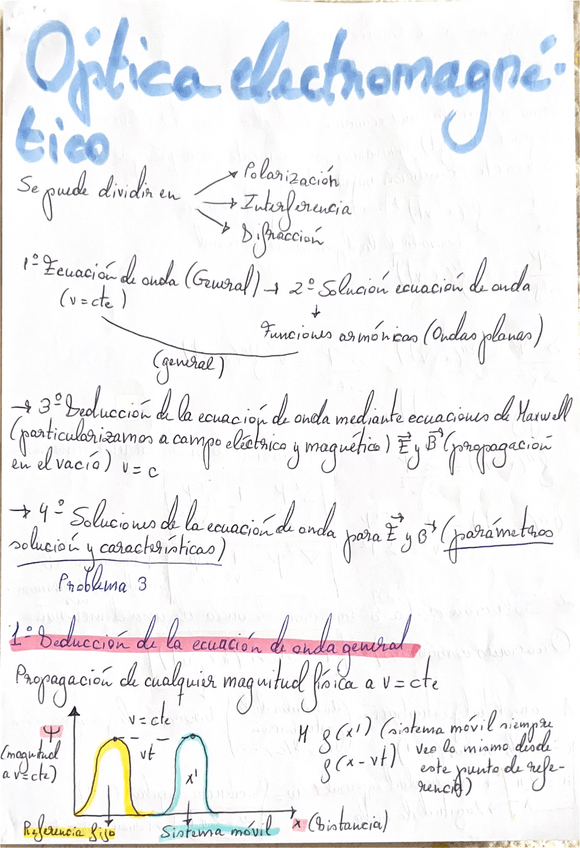 Óptica electromagné-
tico
Se puede dividir en
Polarización
Interferencia
Difracción
1º Ecuación de onda (General) → 2º Solución ecuación de onda
(v=cte)
↓
Funciones armónicas (Ondas planas)
(general)
→ 3º Deducción de la ecuación de onda mediante ecuaciones de Maxwell
(particularizamos a campo eléctrico y magnético) E⃗ y B⃗ (propagación
en el vacío) v = c
→ 4º Soluciones de la ecuación de onda para E⃗ y B⃗ (parámetros
solución y características)
Problema 3
1º Deducción de la ecuación de onda general
Propagación de cualquier magnitud física a v = cte
Ψ
(magnitud
a v=cte)
v = cte
vt
x'
Referencia fijo
Sistema móvil
x (Distancia)
g(x') (sistema móvil siempre
g(x - vt) veo lo mismo desde
este punto de refe-
rencia)